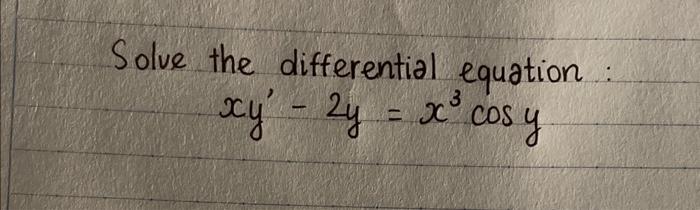 Solve the differential equation :
xy' - 2y = x³ cos y